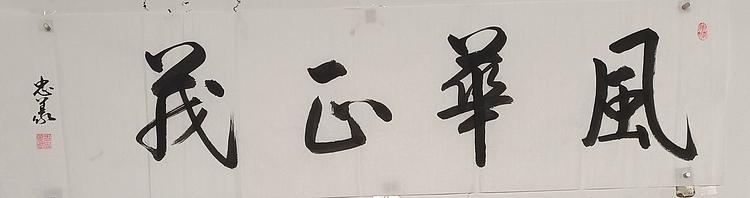 風華正茂
忠義